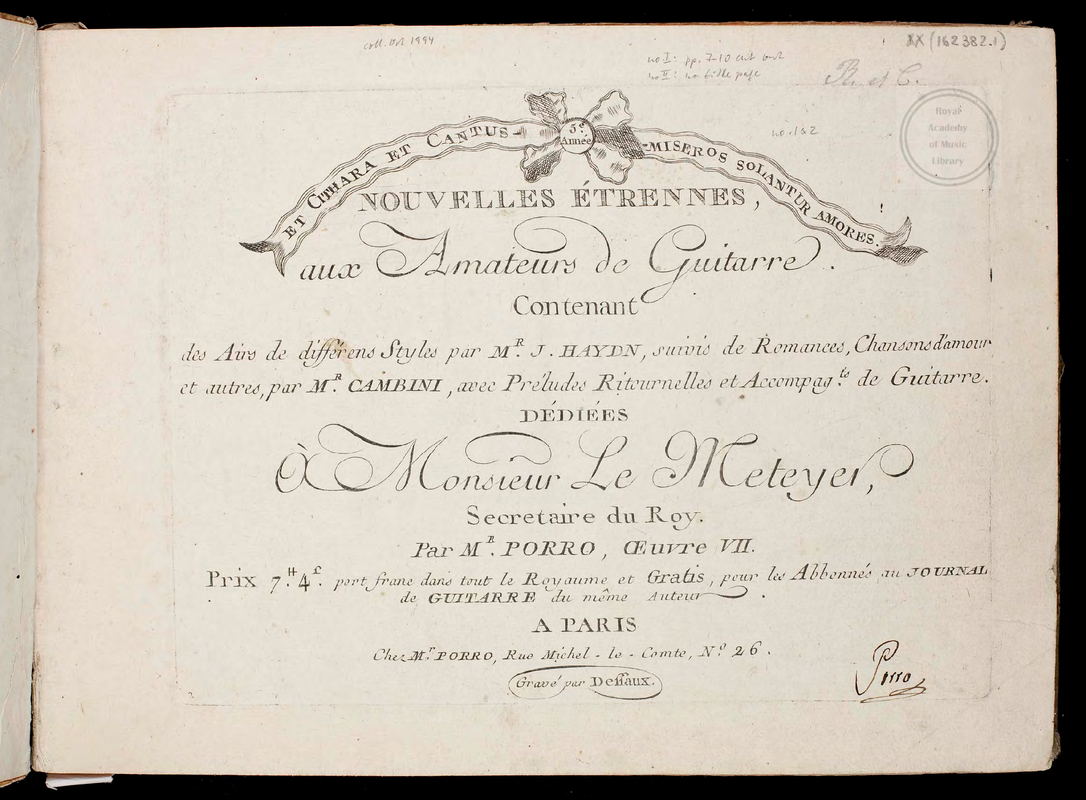 coll. Oct 1994
XX (162382.1)
no I: pp. 7-10 cut out
no II: no title page
R. et C.
no. 1 & 2
Royal
Academy
of Music
Library
ET CITHARA ET CANTUS-
5e
Année
-MISEROS SOLANTUR AMORES.
NOUVELLES ÉTRENNES,
aux Amateurs de Guitarre.
Contenant
des Airs de différens Styles par MR. J. HAYDN, suivis de Romances, Chansons d'amour
et autres, par MR. CAMBINI, avec Préludes Ritournelles et Accompag.ts de Guitarre.
DÉDIÉES
à Monsieur Le Meteyer,
Secretaire du Roy.
Par MR. PORRO, Œuvre VII.
Prix 7.tt 4f. port franc dans tout le Royaume et Gratis, pour les Abbonnés au JOURNAL
de GUITARRE du même Auteur.
A PARIS
Chez Mr. PORRO, Rue Michel-le-Comte, No. 26.
Gravé par Deſſaux.
Porro